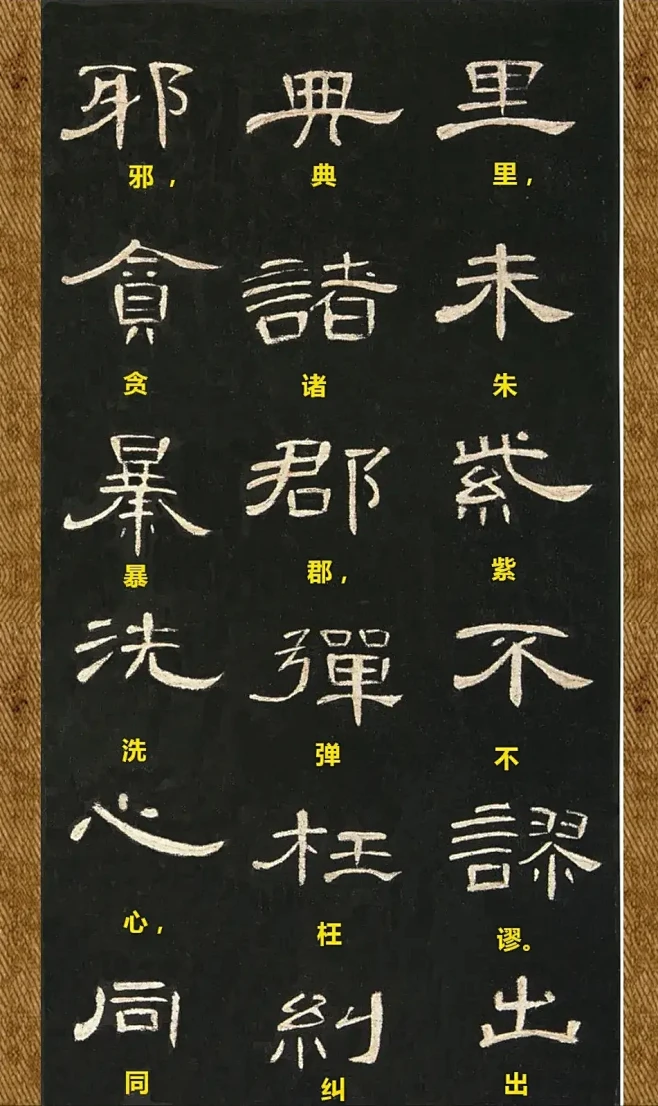 里朱紫不謬出
里，朱紫不谬。出
典諸郡彈枉糾
典诸郡，弹枉纠
邪貪暴洗心同
邪，贪暴洗心，同